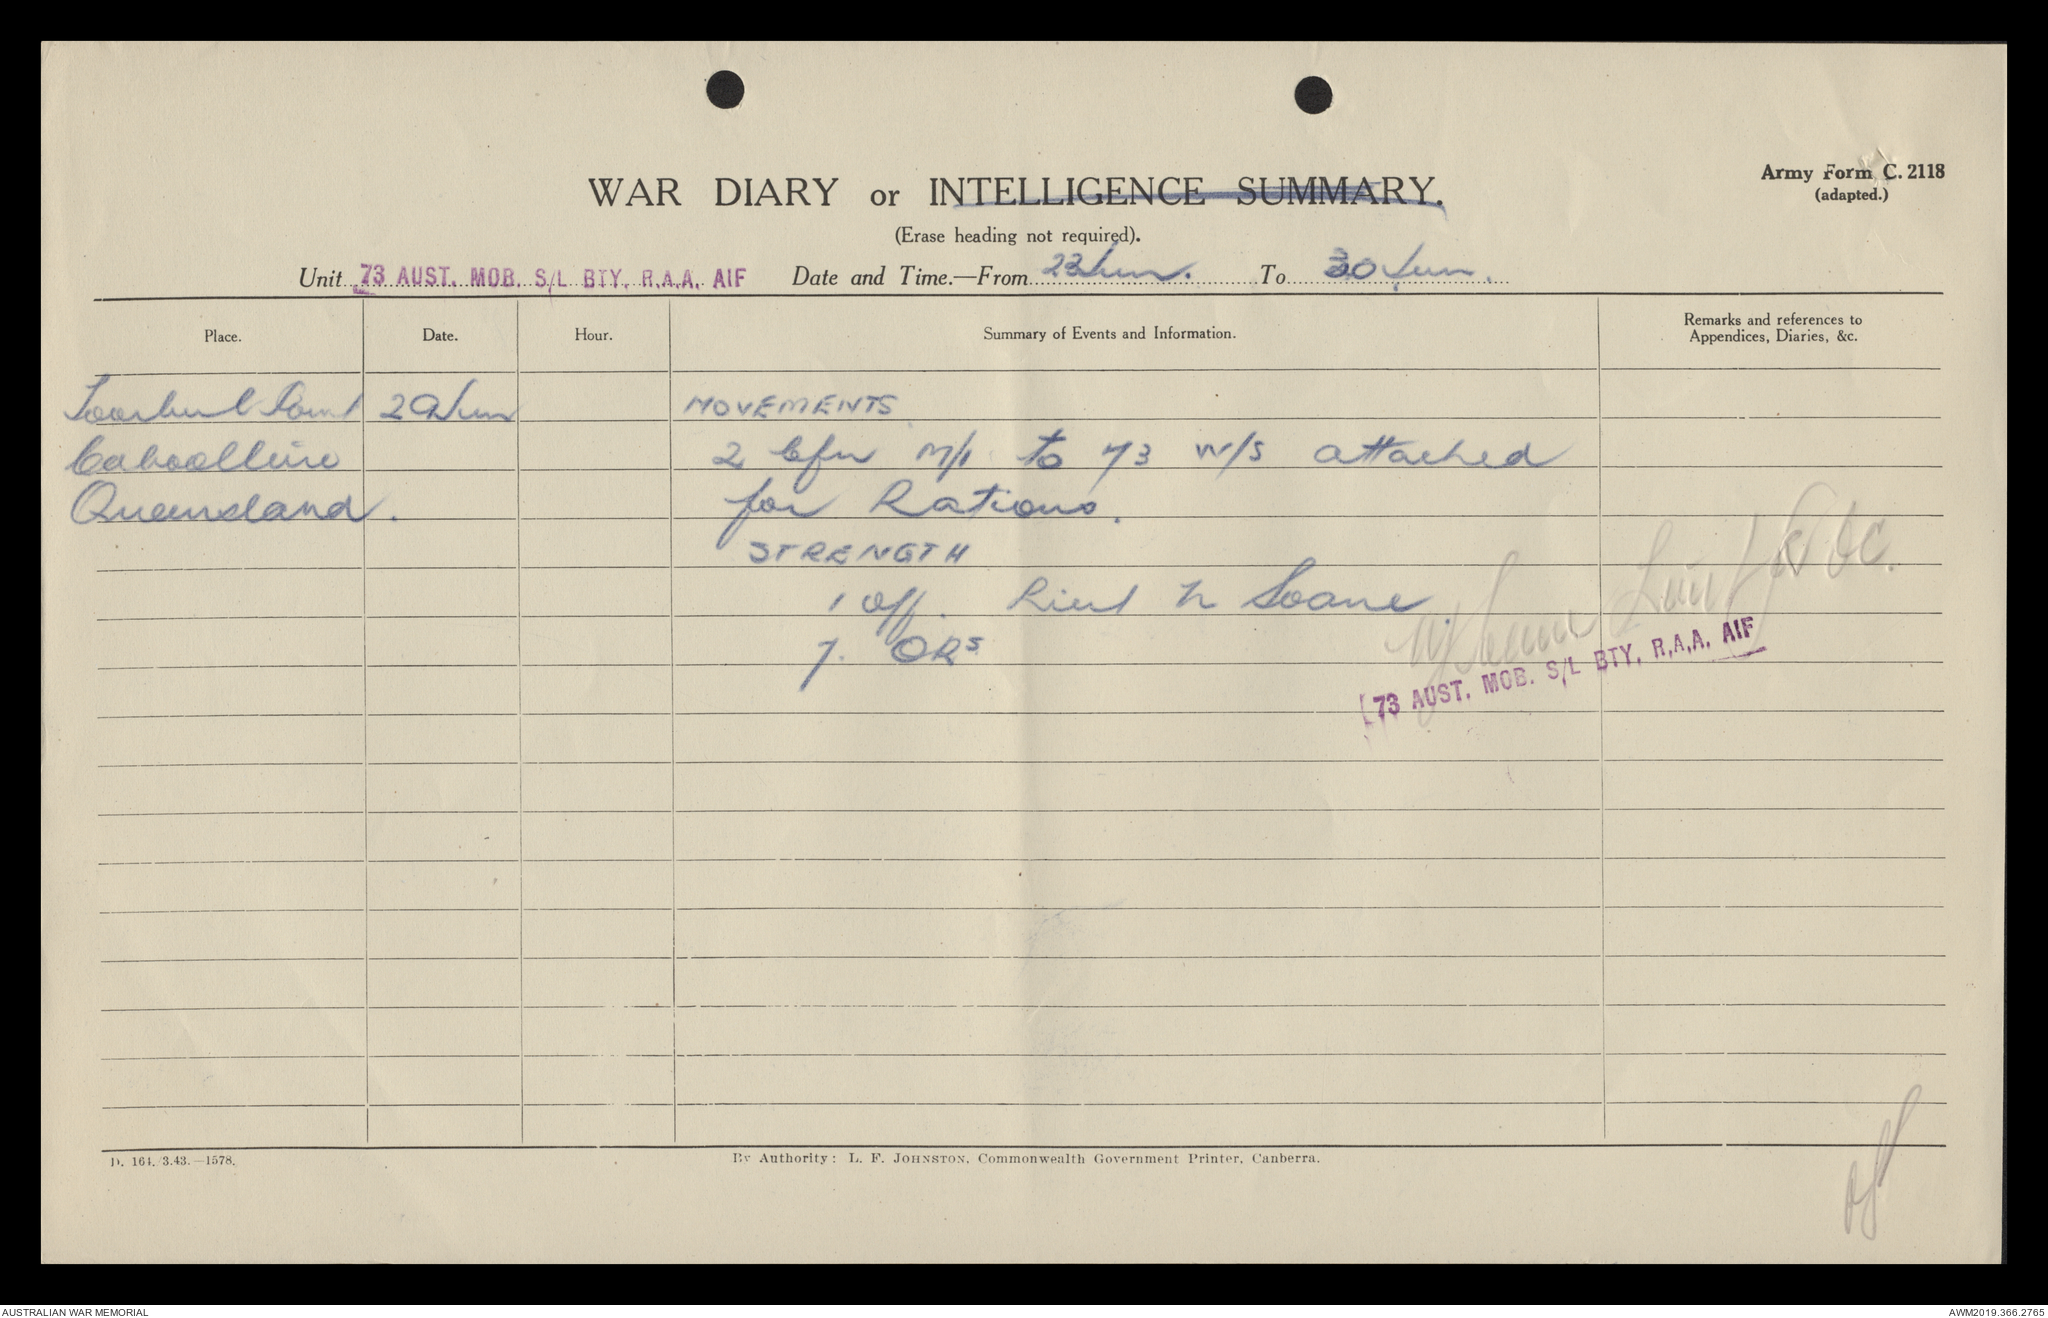 Army Form C. 2118
(adapted.)
WAR DIARY or INTELLIGENCE SUMMARY.
(Erase heading not required).
Unit 73 AUST. MOB. S/L BTY. R.A.A. AIF Date and Time.—From 23 Jun. To 30 Jun.
Place. Date. Hour. Summary of Events and Information. Remarks and references to
Appendices, Diaries, &c.
Toorbul Point 29 Jun MOVEMENTS
Caboolture 2 Cfn M/I to 73 W/S attached
Queensland. for Rations.
STRENGTH
1 Off. Lieut N Soane
7. ORs
Lieut for OC.
73 AUST. MOB. S/L BTY, R.A.A. AIF
D. 164. 3.43.—1578.
By Authority: L. F. JOHNSTON, Commonwealth Government Printer, Canberra.
AUSTRALIAN WAR MEMORIAL
AWM2019.366.2765